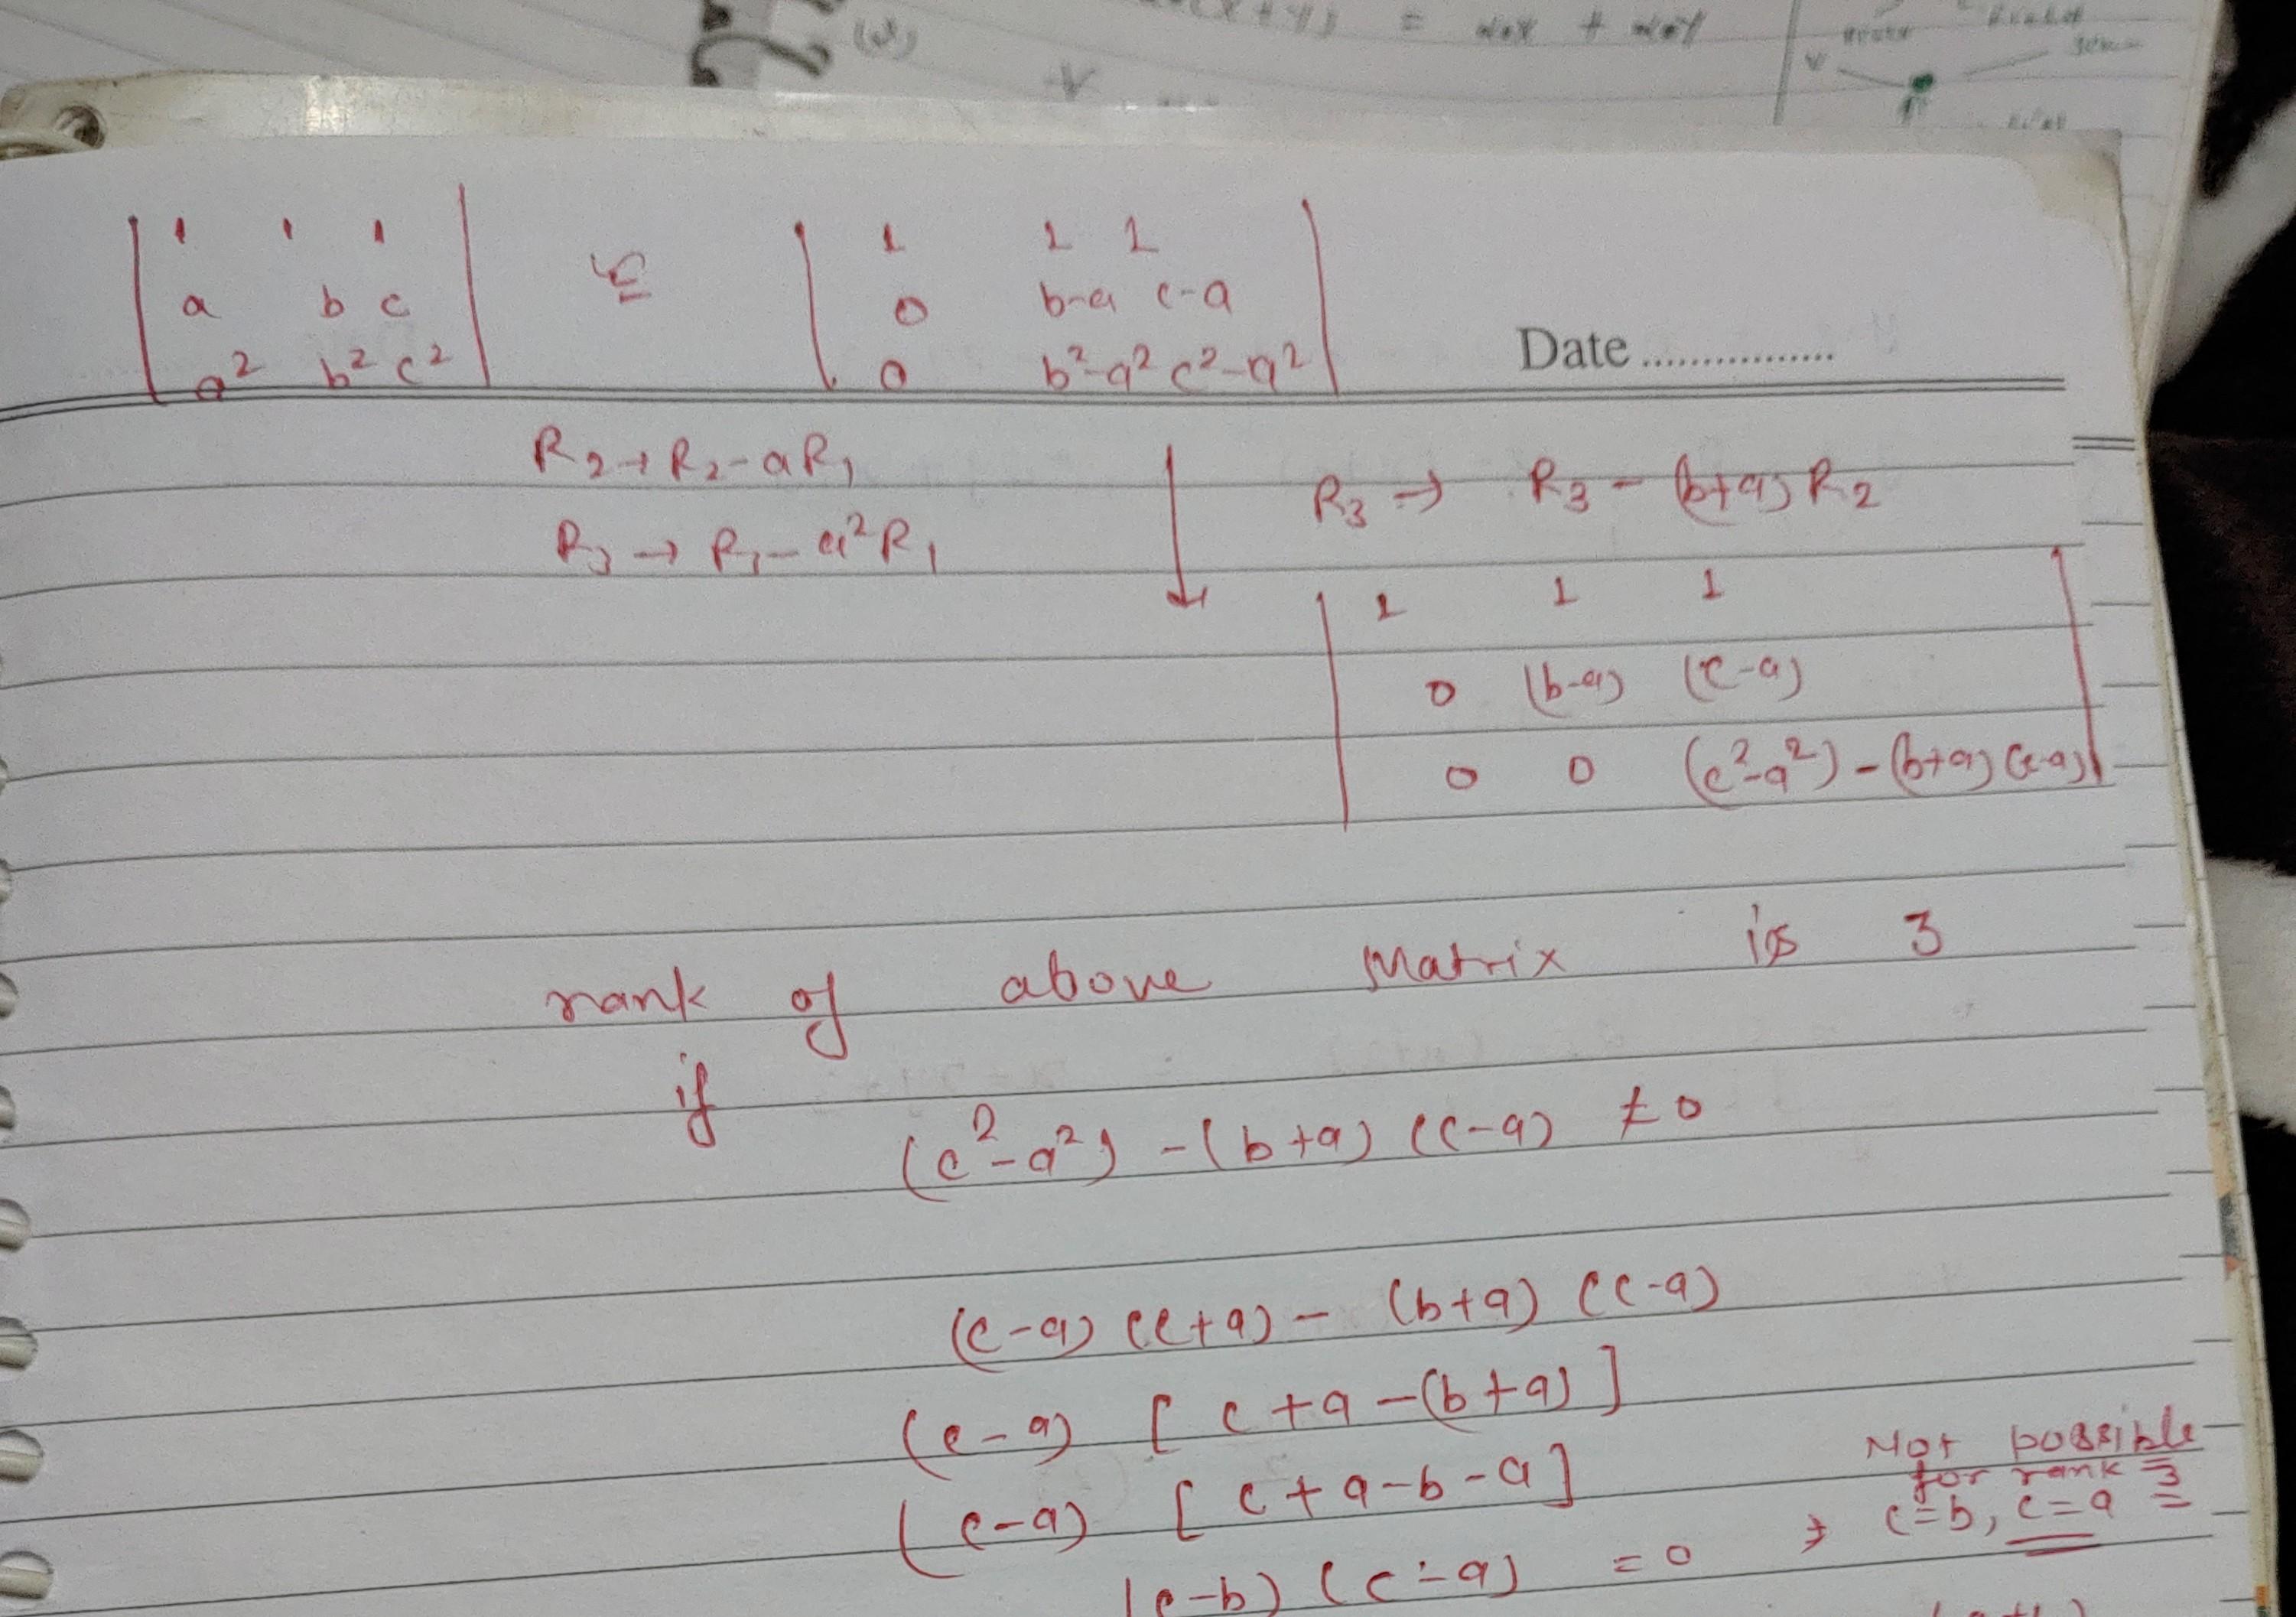 (x+y) = +
1 1 1
a b c
a² b² c²
≅
1 1 1
0 b-a c-a
0 b²-a² c²-a²
Date ................
R₂→R₂-aR₁
R₃ → R₃-a²R₁
R₃ → R₃ - (b+a) R₂
1 1 1
0 (b-a) (c-a)
0 0 (c²-a²) - (b+a) (c-a)
rank of above Matrix is 3
if
(c²-a²) -(b+a) (c-a) ≠ 0
(c-a) (c+a) - (b+a) (c-a)
(c-a) [c+a -(b+a)]
(c-a) [c+a-b-a]
(c-b) (c-a) = 0 →
Not possible
for rank = 3
c=b, c=a